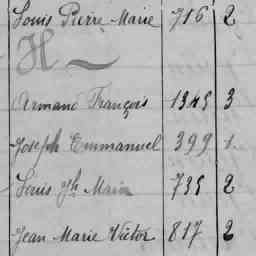 Louis Pierre Marie 716 2
H
Armand François 1345 3
Joseph Emmanuel 399 1
Louis Jh Marin 735 2
Jean Marie Victor 817 2